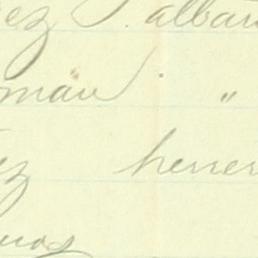 ez J. alban
man "
ez herrer
uos